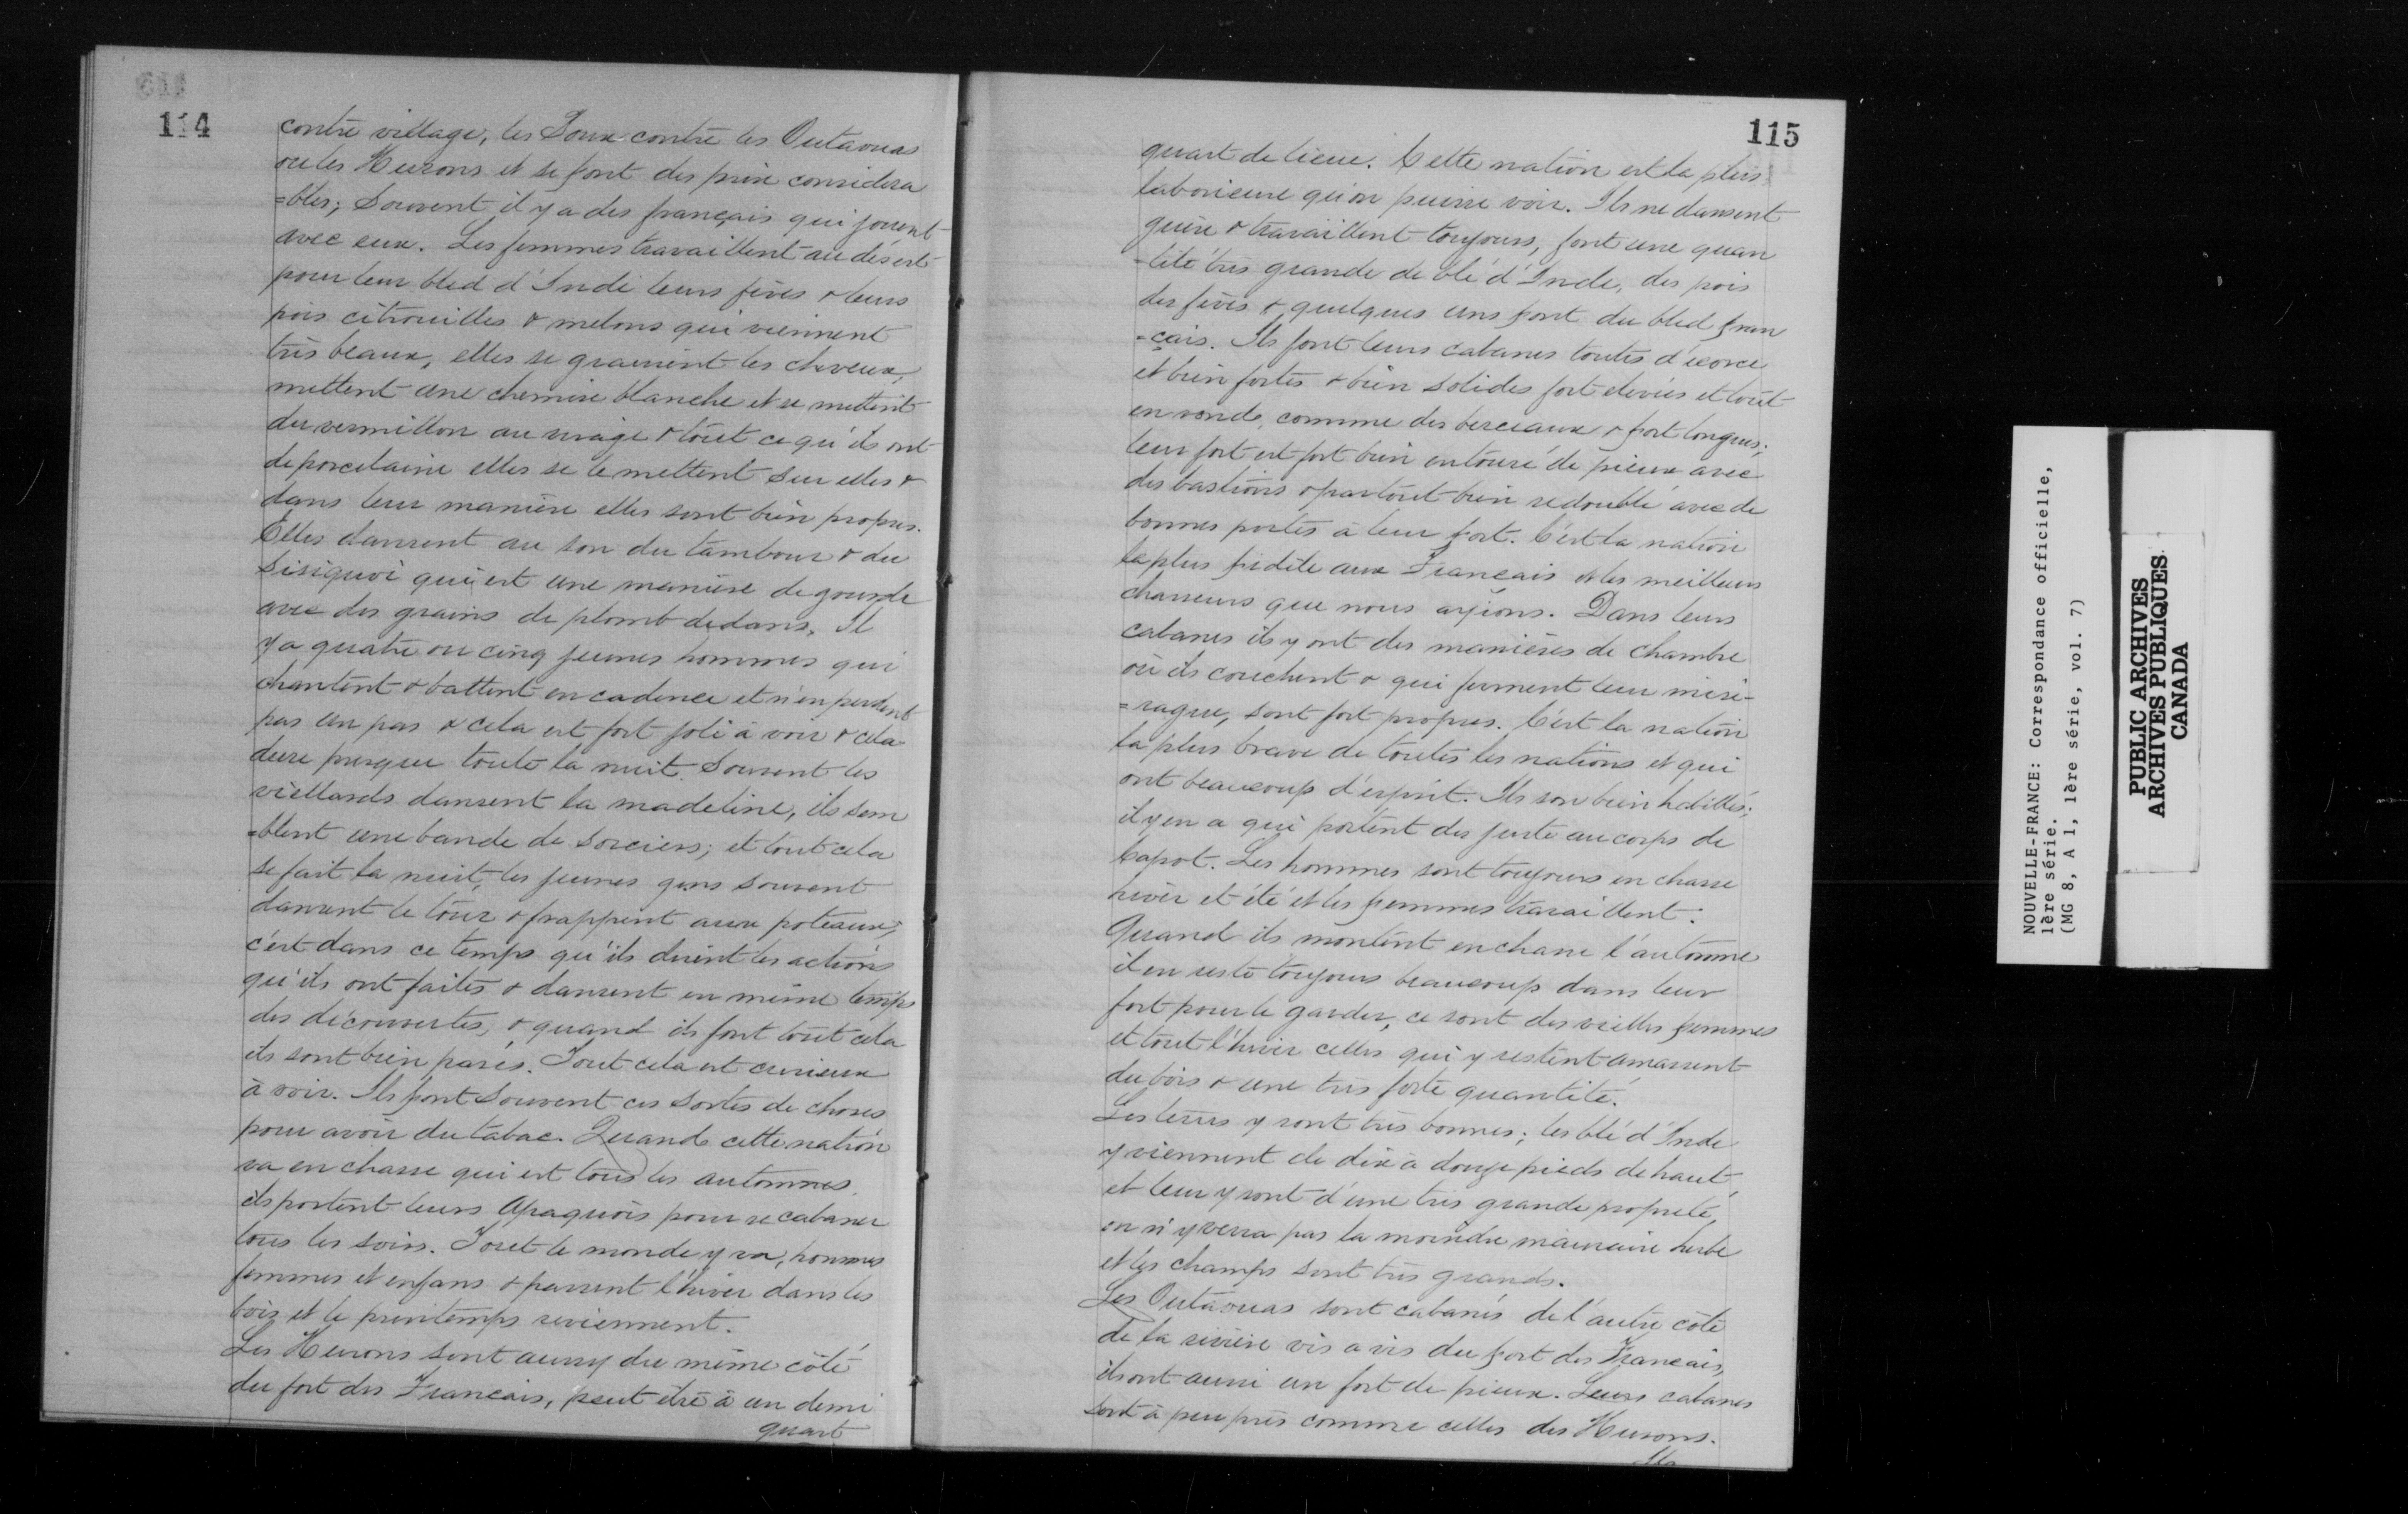 114
contre village, les Poux contre les Outaouas
ou les Hurons et se font des prix considera
=bles; Souvent il y a des français qui jouent
avec eux. Les femmes travaillent au désert
pour leur bled d'Inde leurs fèves & leurs
pois citrouilles & melons qui viennent
très beaux, elles se graissent les cheveux,
mettent une chemise blanche et se mettent
du vermillon au visage & tout ce qu'ils ont
de porcelaine elles se le mettent sur elles &
dans leur manière elles sont bien propres.
Elles dansent au son du tambour & du
Sisiquoi qui est une manière de gourde
avec des grains de plomb dedans. Il
y a quatre ou cinq jeunes hommes qui
chantent & battent en cadence et n'en perdent
pas un pas & cela est fort joli à voir & cela
dure presque toute la nuit. Souvent les
viellards dansent la madeline, ils sem
=blent une bande de Sorciers; et tout cela
se fait la nuit, les jeunes gens souvent
dansent le tour & frappent aux poteaux;
c'est dans ce temps qu'ils disent les actions
qu'ils ont faites & dansent en même temps
des découvertes, & quand ils font tout cela
ils sont bien parés. Tout cela est curieux
à voir. Ils font Souvent ces Sortes de choses
pour avoir du tabac. Quand cette nation
va en chasse qui est tous les automnes,
ils portent leurs Apaquois pour se cabaner
tous les soirs. Tout le monde y va, hommes
femmes et enfans & passent l'hiver dans les
bois et le printemps reviennent.
Les Hurons sont aussy du même côté
du fort des Francais, peut être à un demi
quart
115
quart de lieue. Cette nation est la plus
laborieuse qu'on puisse voir. Ils ne dansent
guère & travaillent toujours, font une quan
=tité très grande de blé d'Inde, des pois
des fèves & quelques uns font du bled fran
=çais. Ils font leurs cabanes toutes d'écorce
et bien fortes & bien Solides fort elevées et tout
en ronde, comme des berceaux & fort longues;
leur fort est fort bien entouré de pieux avec
des bastions & partout bien redoublé avec de
bonnes portes à leur fort. C'est la nation
la plus fidèle aux Francais & les meilleurs
chasseurs que nous ayions. Dans leurs
cabanes ils y ont des manières de chambre
où ils couchent & qui ferment leur misé-
=raque, sont fort propres. C'est la nation
la plus brave de toutes les nations et qui
ont beaucoup d'esprit. Ils son bien habillés;
il y en a qui portent des juste au corps de
Capot. Les hommes sont toujours en chasse
hiver et été et les femmes travaillent.
Quand ils montent en chasse l'automne
il en reste toujours beaucoup dans leur
fort pour le garder, ce sont des vieilles femmes
et tout l'hiver celles qui y restent amassent
du bois & une très forte quantité.
Les terres y sont très bonnes; les blé d'Inde
y viennent de dix à douze pieds de haut,
et leur y sont d'une très grande propreté,
on n'y verra pas la moindre mauvaise herbe
et les champs sont très grands.
Les Outaouas sont cabanés de l'autre côté
de la rivière vis à vis du fort des Francais,
ils ont aussi un fort de pieux. Leurs cabanes
sont à peu près comme celles des Hurons.
Ils
NOUVELLE-FRANCE: Correspondance officielle,
1ère série.
(MG 8, A 1, 1ère série, vol. 7)
PUBLIC ARCHIVES
ARCHIVES PUBLIQUES
CANADA